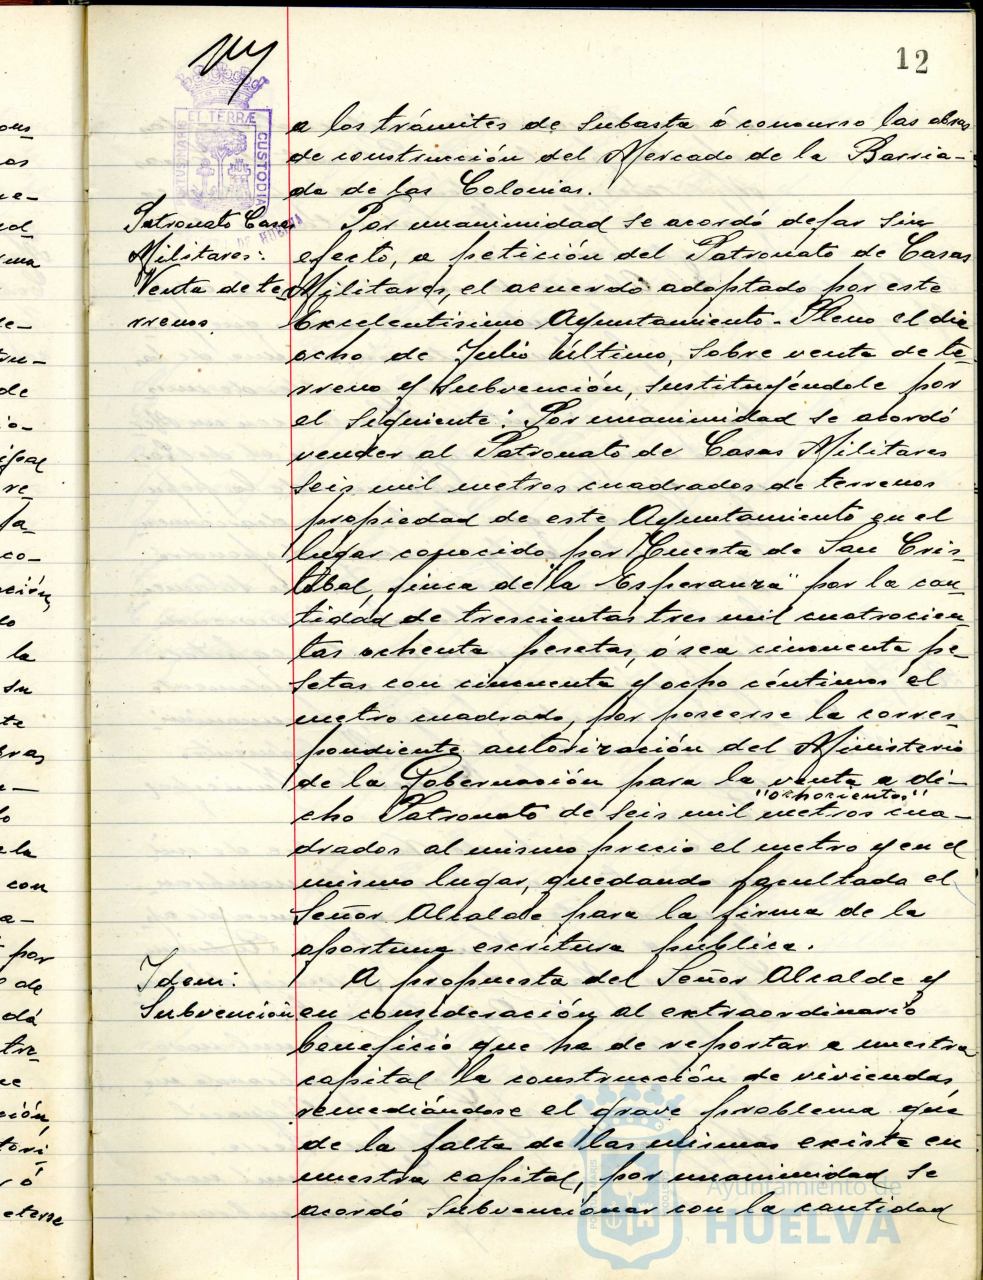 12
a los trámites de subasta ó concurso las obras
de construcción del Mercado de la Barria-
da de las Colonias.
Patronato Casas
Militares:
Venta de te-
rrenos.
Por unanimidad se acordó dejar sin
efecto, a petición del Patronato de Casas
Militares, el acuerdo adoptado por este
Excelentísimo Ayuntamiento-Pleno el dia
ocho de Julio último, sobre venta de te-
rreno y subvención, sustituyéndole por
el siguiente: Por unanimidad se acordó
vender al Patronato de Casas Militares
seis mil metros cuadrados de terrenos
propiedad de este Ayuntamiento en el
lugar conocido por "Cuesta de San Cris-
tóbal, finca de la Esperanza" por la can-
tidad de trescientas tres mil cuatrocien-
tas ochenta pesetas, ó sea cincuenta pe-
setas con cincuenta y ocho céntimos el
metro cuadrado, por poseerse la corres-
pondiente autorización del Ministerio
de la Gobernación para la venta a di-
"ochocientos"
cho Patronato de seis mil metros cua-
drados al mismo precio el metro y en el
mismo lugar, quedando facultado el
Señor Alcalde para la firma de la
oportuna escritura pública.
Idem:
Subvención
A propuesta del Señor Alcalde y
en consideración al extraordinario
beneficio que ha de reportar a nuestra
capital la construcción de viviendas,
remediándose el grave problema que
de la falta de las mismas existe en
nuestra capital, por unanimidad se
acordó subvencionar con la cantidad
ET TERRÆ
CUSTODIA
Ayuntamiento de
HUELVA